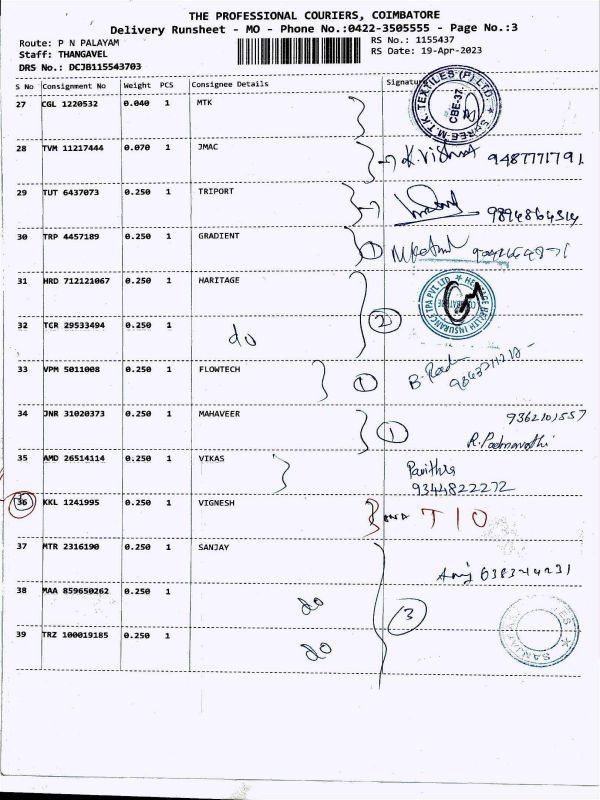 THE PROFESSIONAL COURIERS, COIMBATORE
Delivery Runsheet - MO - Phone No.:0422-3505555 - Page No.:3
Route: P N PALAYAM RS No.: 1155437
Staff: THANGAVEL RS Date: 19-Apr-2023
DRS No.: DCJB115543703
S No Consignment No Weight PCS Consignee Details Signature
27 CGL 1220532 0.040 1 MTK
SHREE M.T.K. TEXTILES (P) LTD CBE-37
28 TVM 11217444 0.070 1 JMAC 9487771791
29 TUT 6437073 0.250 1 TRIPORT
30 TRP 4457189 0.250 1 GRADIENT 1
31 HRD 712121067 0.250 1 HARITAGE
HERITAGE HEALTH INSURANCE TPA PVT LTD
32 TCR 29533494 0.250 1 do 2
33 VPM 5011008 0.250 1 FLOWTECH 1
34 JNR 31020373 0.250 1 MAHAVEER 1 9362101557
R. Padmavathi
35 AMD 26514114 0.250 1 VIKAS Pavithra
9344822272
36 KKL 1241995 0.250 1 VIGNESH T I O
37 MTR 2316190 0.250 1 SANJAY
38 MAA 859650262 0.250 1 do 3
39 TRZ 100019185 0.250 1 do
SANJAY